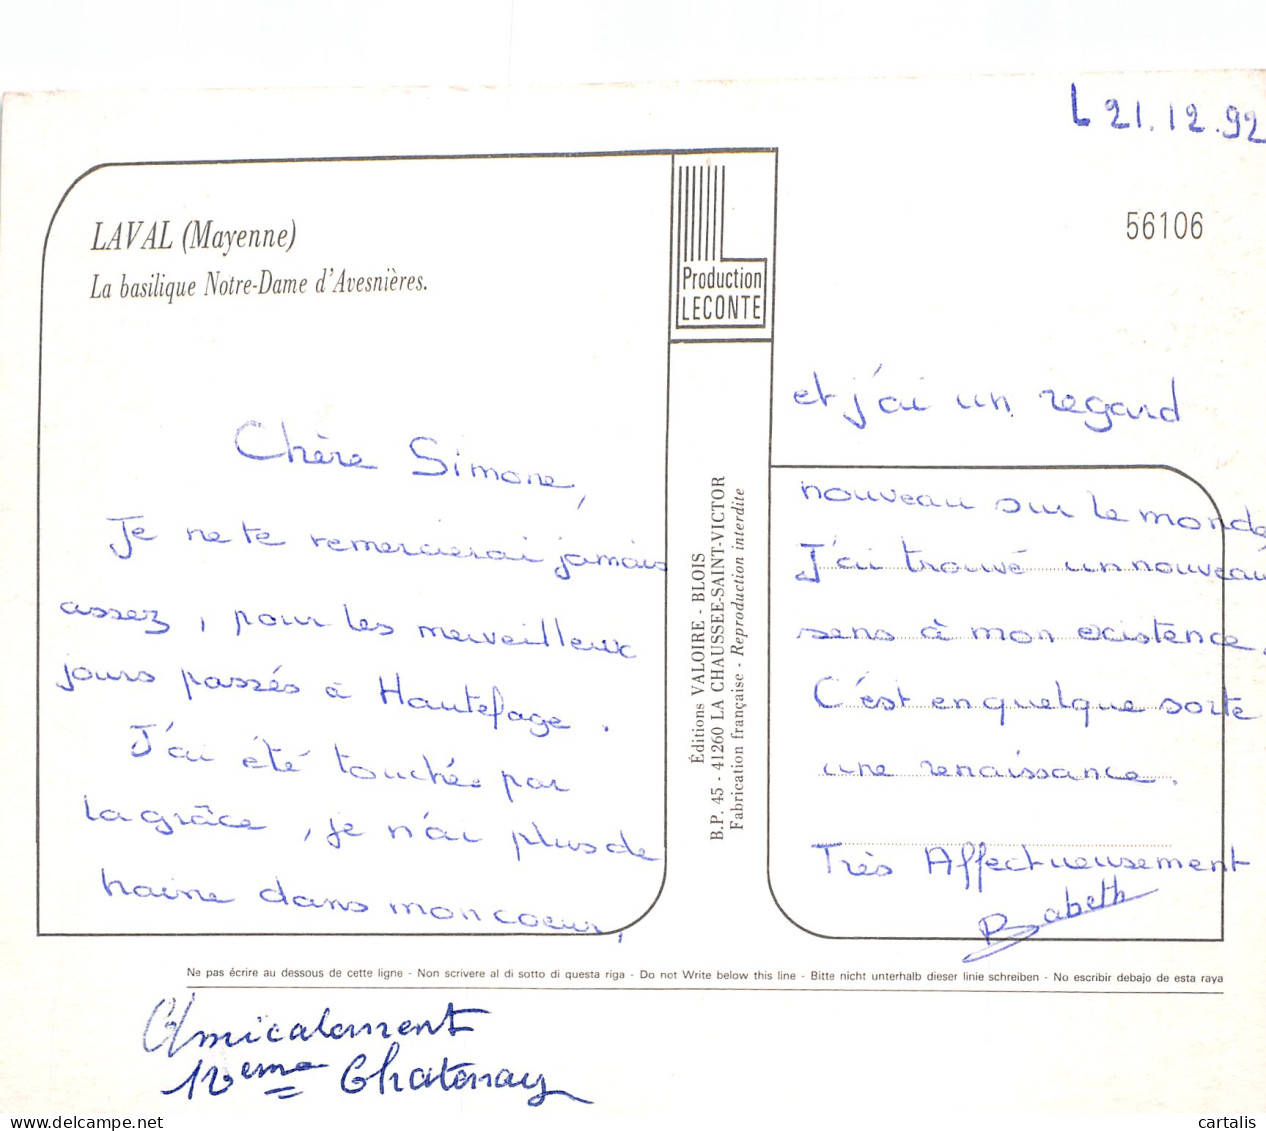 L 21.12.92
56106
LAVAL (Mayenne)
La basilique Notre-Dame d'Avesnières.
Production
LECONTE
Chère Simone,
Je ne te remercierai jamais
assez, pour les merveilleux
jours passés à Hautefage.
J'ai été touchée par
la grâce, je n'ai plus de
haine dans mon coeur,
et j'ai un regard
nouveau sur le monde
J'ai trouvé un nouveau
sens à mon existence.
C'est en quelque sorte
une renaissance.
Très Affectueusement
Babeth
Éditions VALOIRE - BLOIS
B.P. 45 - 41260 LA CHAUSSEE-SAINT-VICTOR
Fabrication française - Reproduction interdite
Ne pas écrire au dessous de cette ligne - Non scrivere al di sotto di questa riga - Do not Write below this line - Bitte nicht unterhalb dieser linie schreiben - No escribir debajo de esta raya
Amicalement
Chatenay
cartalis